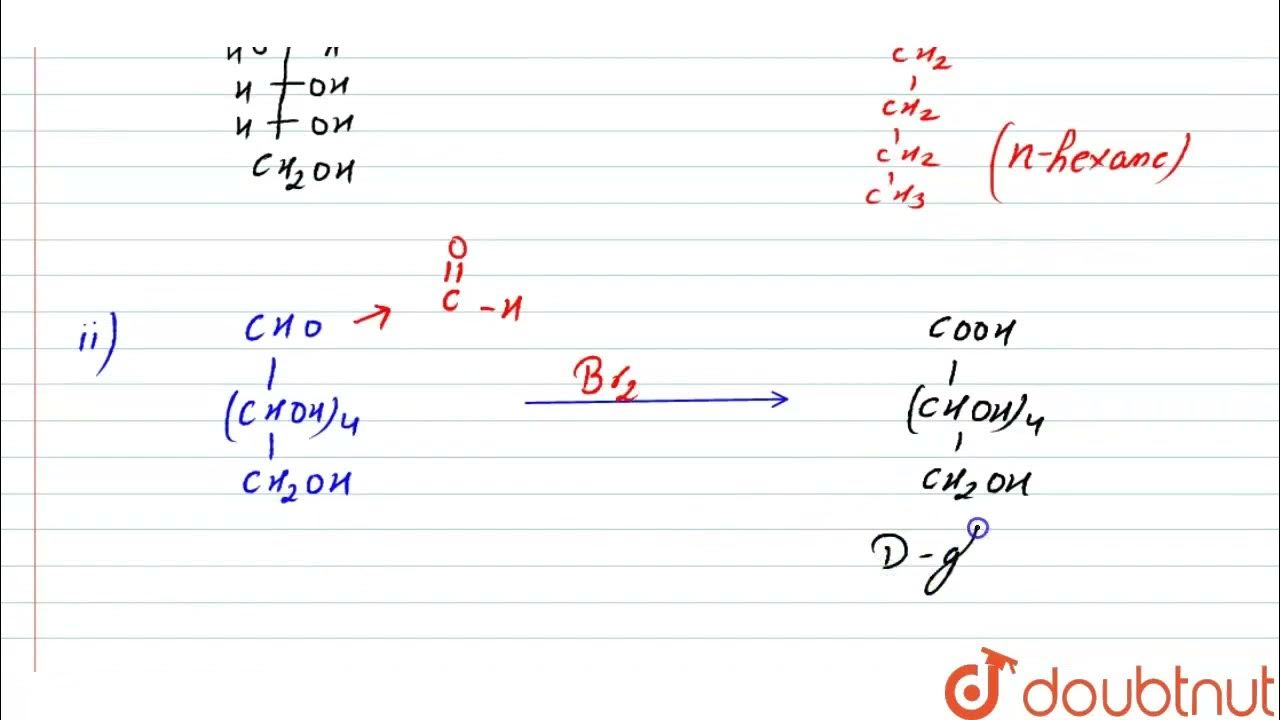 H OH
H OH
CH2OH
CH2
CH2
CH2
CH3
(n-hexane)
O
C - H
ii)
CHO
(CHOH)4
CH2OH
Br2
COOH
(CHOH)4
CH2OH
D-g
doubtnut